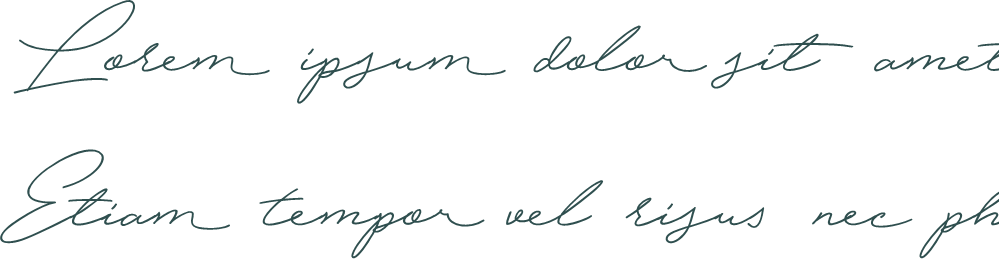 Lorem ipsum dolor sit amet
Etiam tempor vel risus nec ph